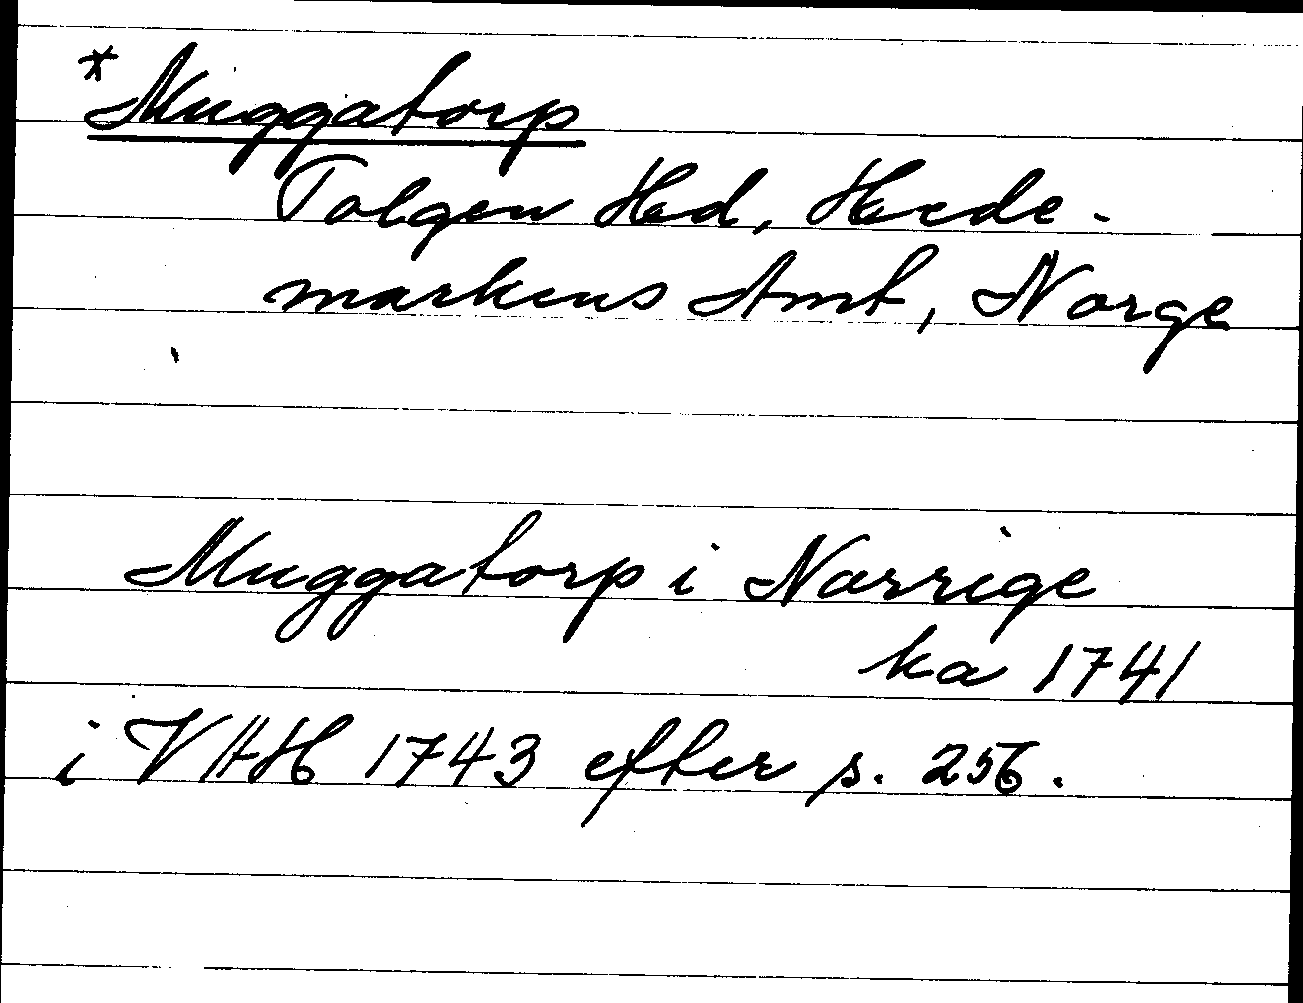 *Muggatorp
Tolgen Hd, Hede-
markens Amt, Norge
Muggatorp i Norrige
ka 1741
i VAH 1743 efter s. 256.